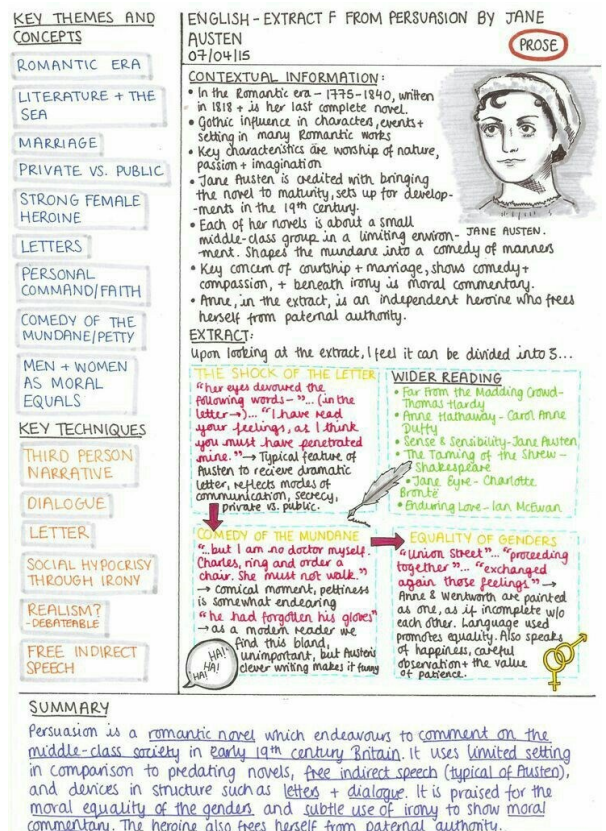 KEY THEMES AND
CONCEPTS
ROMANTIC ERA
LITERATURE + THE
SEA
MARRIAGE
PRIVATE VS. PUBLIC
STRONG FEMALE
HEROINE
LETTERS
PERSONAL
COMMAND/FAITH
COMEDY OF THE
MUNDANE/PETTY
MEN + WOMEN
AS MORAL
EQUALS
KEY TECHNIQUES
THIRD PERSON
NARRATIVE
DIALOGUE
LETTER
SOCIAL HYPOCRISY
THROUGH IRONY
REALISM?
-DEBATEABLE
FREE INDIRECT
SPEECH
ENGLISH - EXTRACT F FROM PERSUASION BY JANE
AUSTEN
07/04/15
PROSE
CONTEXTUAL INFORMATION:
• In the Romantic era - 1775-1840, written
in 1818 + is her last complete novel.
• Gothic influence in characters, events +
setting in many Romantic works
• Key characteristics are worship of nature,
passion + imagination
• Jane Austen is credited with bringing
the novel to maturity, sets up for develop-
-ments in the 19th century.
• Each of her novels is about a small
middle-class group in a limiting environ-
-ment. Shapes the mundane into a comedy of manners
• Key concern of courtship + marriage, shows comedy +
compassion, + beneath irony is moral commentary.
• Anne, in the extract, is an independent heroine who frees
herself from paternal authority.
JANE AUSTEN.
EXTRACT:
Upon looking at the extract, I feel it can be divided into 3...
THE SHOCK OF THE LETTER
"her eyes devoured the
following words - "... (in the
letter →)... "I have read
your feelings, as I think
you must have penetrated
mine." → Typical feature of
Austen to recieve dramatic
letter, reflects modes of
communication, secrecy,
private vs. public.
WIDER READING
• Far From the Madding Crowd -
Thomas Hardy
• Anne Hathaway - Carol Anne
Duffy
• Sense & Sensibility - Jane Austen
• The Taming of the Shrew -
Shakespeare
• Jane Eyre - Charlotte
Brontë
• Enduring Love - Ian McEwan
COMEDY OF THE MUNDANE
"...but I am no doctor myself.
Charles, ring and order a
chair. She must not walk."
→ comical moment, pettiness
is somewhat endearing
"he had forgotten his gloves"
→ as a modern reader we
find this bland,
unimportant, but Austen's
clever writing makes it funny
HA!
HA!
HA!
EQUALITY OF GENDERS
"Union Street"... "proceeding
together"... "exchanged
again those feelings" →
Anne & Wentworth are painted
as one, as if incomplete w/o
each other. Language used
promotes equality. Also speaks
of happiness, careful
observation + the value
of patience.
SUMMARY
Persuasion is a romantic novel which endeavours to comment on the
middle-class society in early 19th century Britain. It uses limited setting
in comparison to predating novels, free indirect speech (typical of Austen),
and devices in structure such as letters + dialogue. It is praised for the
moral equality of the genders and subtle use of irony to show moral
commentary. The heroine also frees herself from paternal authority.